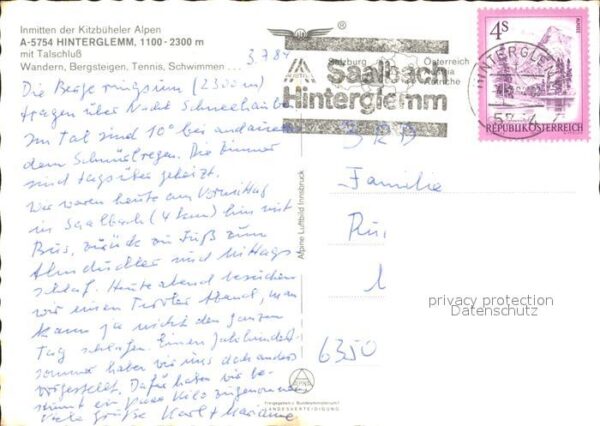 Inmitten der Kitzbüheler Alpen
A-5754 HINTERGLEMM, 1100 - 2300 m
mit Talschluß
Wandern, Bergsteigen, Tennis, Schwimmen . . .
3.7.84
Die Berge ringsum (2300 m)
tragen über Nacht Schneehauben
Im Tal sind 10° bei andauern
dem Schnürlregen. Die Zimmer
sind tagsüber geheizt.
Wir waren heute am Vormittag
in Saalbach (4 km) hin mit
Bus, zurück zu Fuß zum
Almdudler und Mittags
schlaf. Heute abend besuchen
wir einen Tiroler Abend, man
kann ja nicht den ganzen
Tag schlafen. Einen Jahrhundert
sommer haben wir uns doch anders
vorgestellt. Dafür haben wir be-
stimmt ein paar Kilo zugenommen
Viele Grüße Karl + Marianne
Salzburg Österreich
Saalbach
Hinterglemm
4S
HINTERGLEMM
REPUBLIK ÖSTERREICH
BRD
Familie
6350
Alpine Luftbild Innsbruck
privacy protection
Datenschutz
ALPINE
Freigegeben v. Bundesministerium f.
LANDESVERTEIDIGUNG